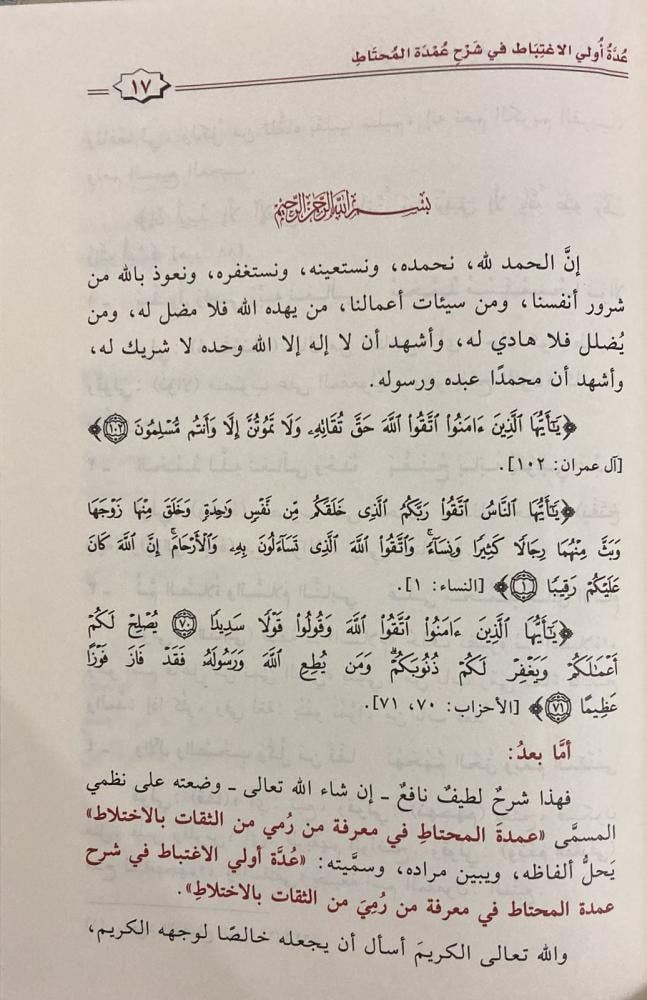 عُدَّةُ أُولي الاغتِبَاط في شَرْحِ عُمْدَة المُحتَاطِ
١٧
بسم الله الرحمن الرحيم
إنَّ الحمد لله، نحمده، ونستعينه، ونستغفره، ونعوذ بالله من
شرور أنفسنا، ومن سيئات أعمالنا، من يهده الله فلا مضل له، ومن
يُضلل فلا هادي له، وأشهد أن لا إله إلا الله وحده لا شريك له،
وأشهد أن محمدًا عبده ورسوله.
﴿يَٰٓأَيُّهَا ٱلَّذِينَ ءَامَنُوا۟ ٱتَّقُوا۟ ٱللَّهَ حَقَّ تُقَاتِهِۦ وَلَا تَمُوتُنَّ إِلَّا وَأَنتُم مُّسْلِمُونَ ١٠٢﴾
[آل عمران: ١٠٢].
﴿يَٰٓأَيُّهَا ٱلنَّاسُ ٱتَّقُوا۟ رَبَّكُمُ ٱلَّذِى خَلَقَكُم مِّن نَّفْسٍ وَٰحِدَةٍ وَخَلَقَ مِنْهَا زَوْجَهَا
وَبَثَّ مِنْهُمَا رِجَالًا كَثِيرًا وَنِسَآءً ۚ وَٱتَّقُوا۟ ٱللَّهَ ٱلَّذِى تَسَآءَلُونَ بِهِۦ وَٱلْأَرْحَامَ ۚ إِنَّ ٱللَّهَ كَانَ
عَلَيْكُمْ رَقِيبًا ١﴾ [النساء: ١].
﴿يَٰٓأَيُّهَا ٱلَّذِينَ ءَامَنُوا۟ ٱتَّقُوا۟ ٱللَّهَ وَقُولُوا۟ قَوْلًا سَدِيدًا ٧٠ يُصْلِحْ لَكُمْ
أَعْمَٰلَكُمْ وَيَغْفِرْ لَكُمْ ذُنُوبَكُمْ ۗ وَمَن يُطِعِ ٱللَّهَ وَرَسُولَهُۥ فَقَدْ فَازَ فَوْزًا
عَظِيمًا ٧١﴾ [الأحزاب: ٧٠، ٧١].
أمَّا بعدُ:
فهذا شرحٌ لطيفٌ نافعٌ ـ إن شاء الله تعالى ـ وضعته على نظمي
المسمَّى «عمدةَ المحتاطِ في معرفة من رُمي من الثقات بالاختلاط»
يَحلُّ ألفاظه، ويبين مراده، وسمَّيته: «عُدَّة أولي الاغتباط في شرح
عمدة المحتاط في معرفة من رُمِيَ من الثقات بالاختلاطِ».
والله تعالى الكريمَ أسأل أن يجعله خالصًا لوجهه الكريم،